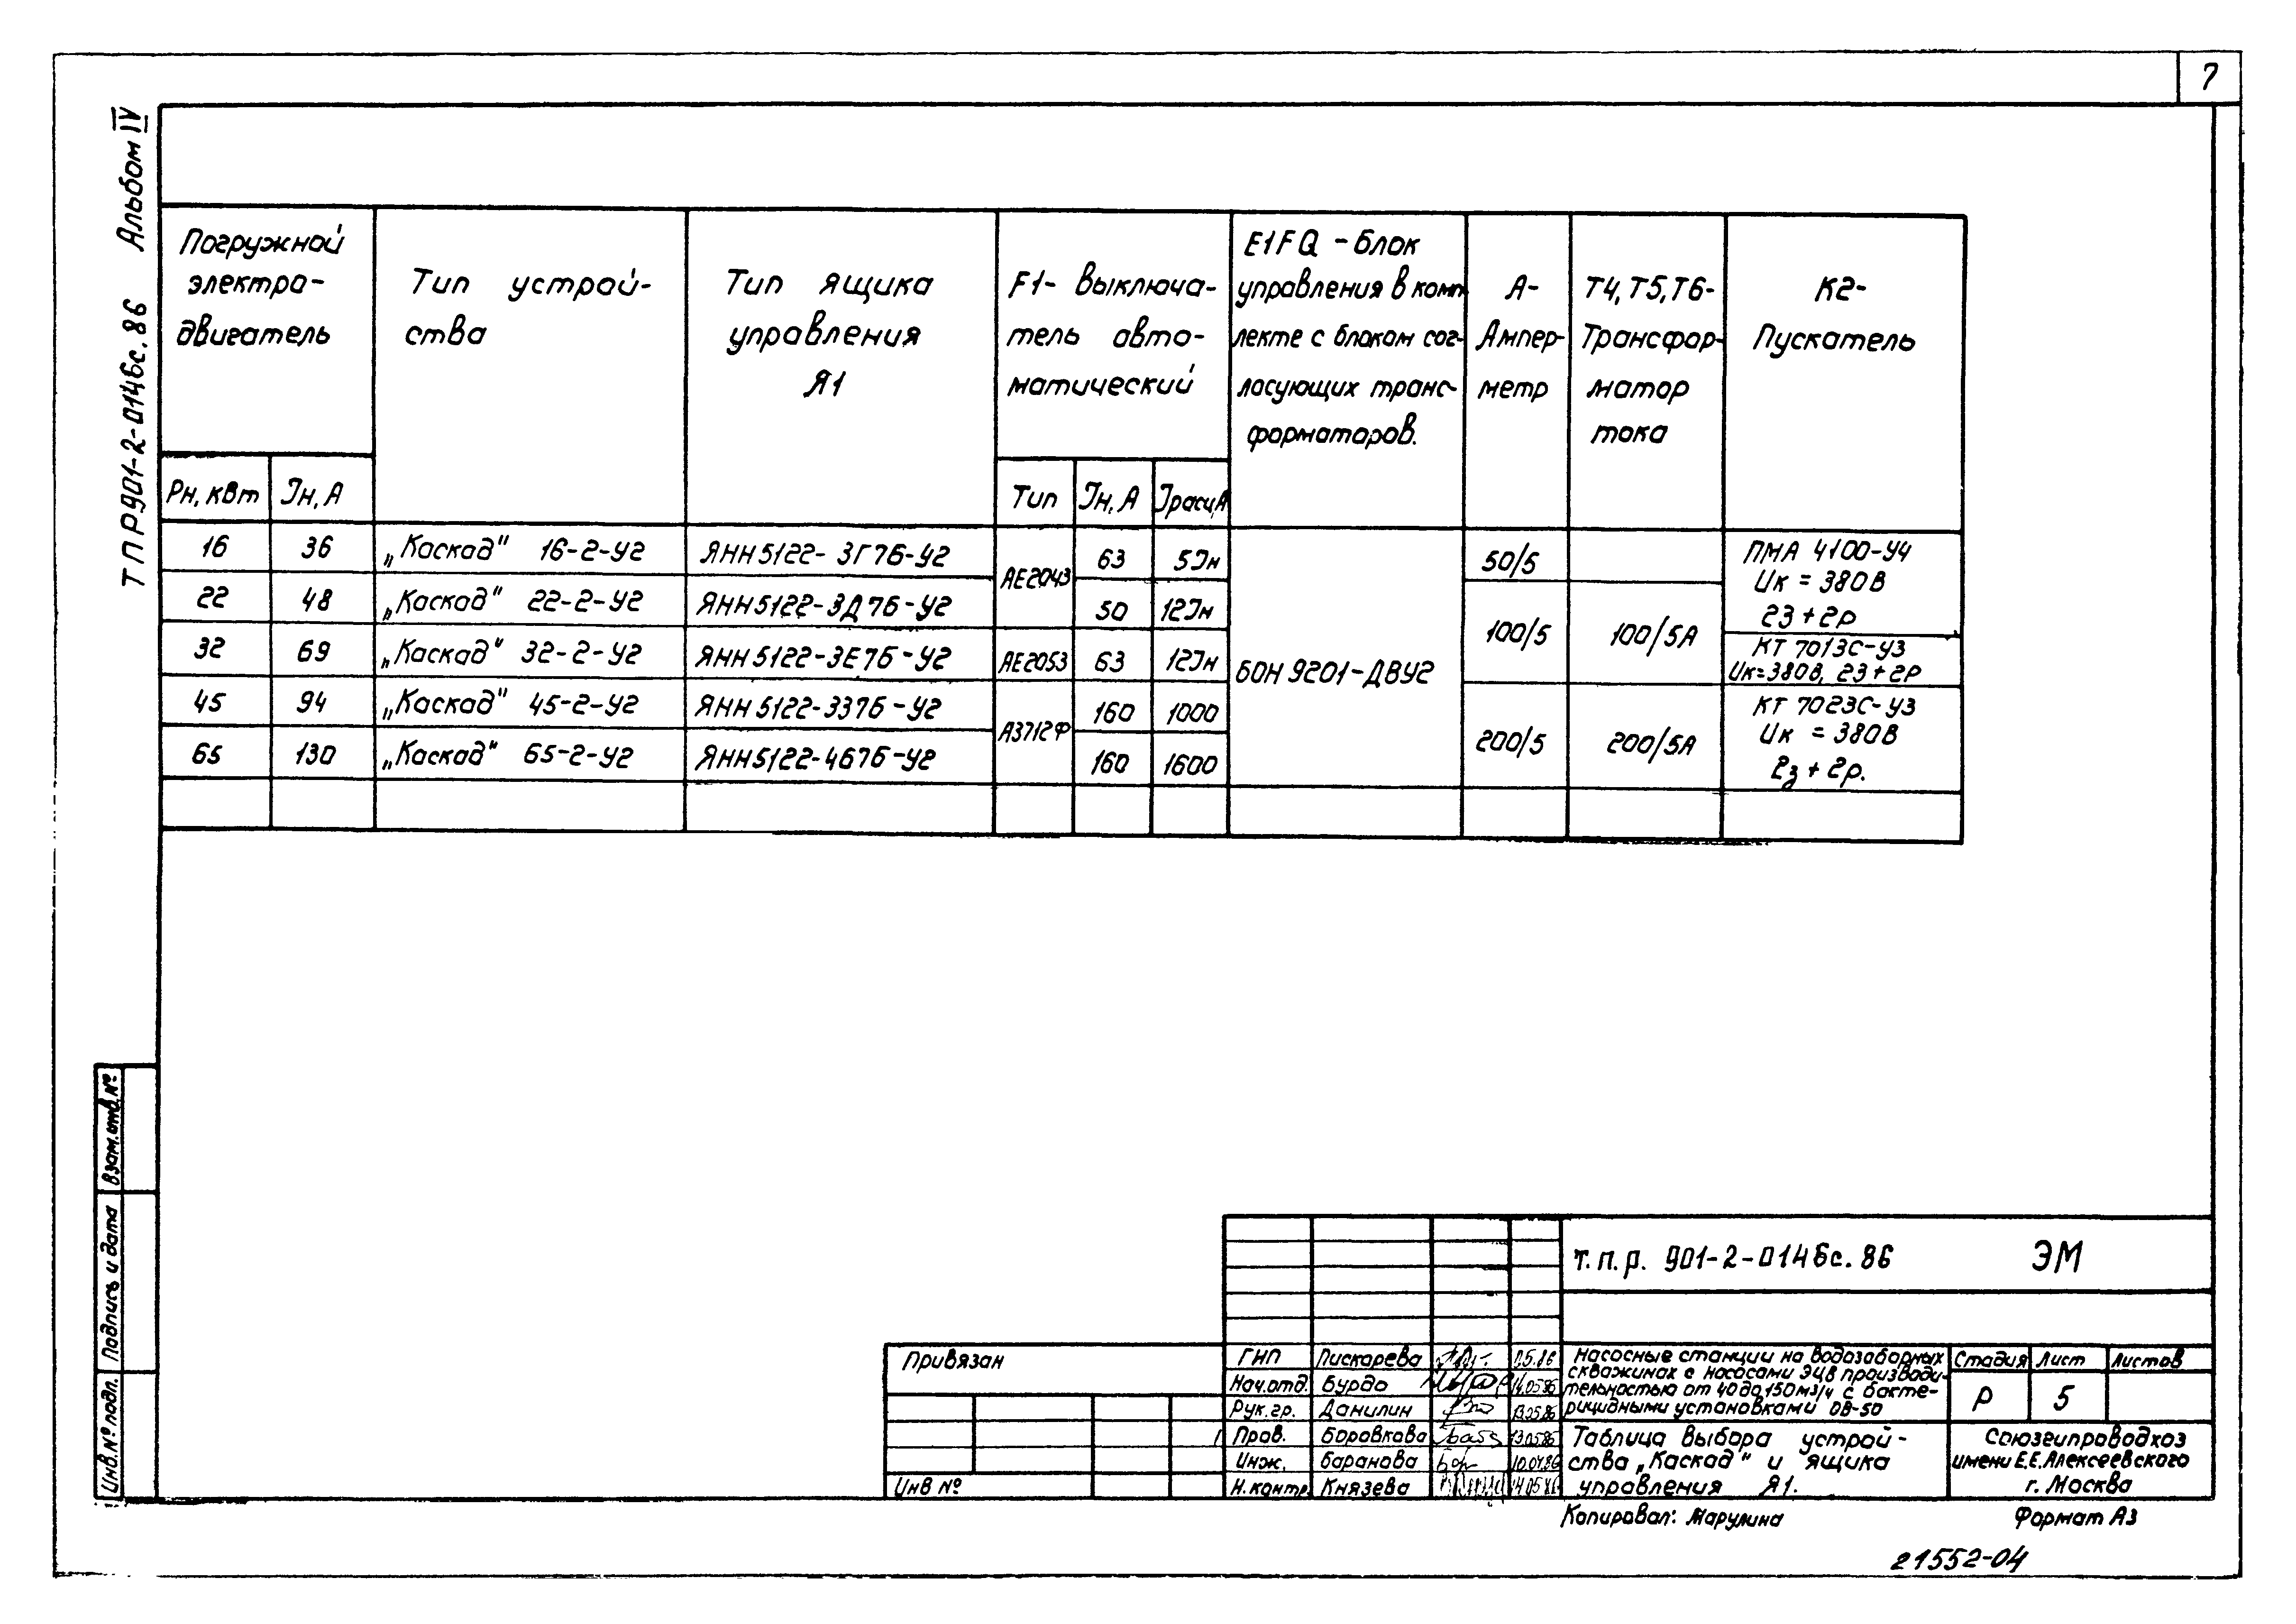 7
ТПР901-2-0146с.86 Альбом IV
Погружной
электро-
двигатель
Тип устрой-
ства
Тип ящика
управления
Я1
F1- Выключа-
тель авто-
матический
E1FQ - блок
управления в комп-
лекте с блоком сог-
ласующих транс-
форматоров.
А-
Ампер-
метр
Т4, Т5, Т6-
Трансфор-
матор
тока
К2-
Пускатель
Рн, кВт Iн, А
Тип Iн, А Iрасц,А
16 36 „Каскад" 16-2-У2 ЯНН5122-3Г7б-У2 АЕ2043 63 5Iн БОН 9201-ДВУ2 50/5 ПМА 4100-У4
Uк = 380В
2з + 2р
22 48 „Каскад" 22-2-У2 ЯНН5122-3Д7б-У2 50 12Iн 100/5 100/5А
32 69 „Каскад" 32-2-У2 ЯНН5122-3Е7б-У2 АЕ2053 63 12Iн КТ 7013С-У3
Uк=380В, 2з + 2р
45 94 „Каскад" 45-2-У2 ЯНН5122-337б-У2 А3712Ф 160 1000 200/5 200/5А КТ 7023С-У3
Uк = 380В
2з + 2р.
65 130 „Каскад" 65-2-У2 ЯНН5122-467б-У2 160 1600
Взам.инв.№
Подпись и дата
Инв.№ подл.
т.п.р. 901-2-0146с.86 ЭМ
Привязан
Инв №
ГИП Пискарева 05.86
Нач.отд. Бурдо 14.05.86
Рук.гр. Данилин 13.05.86
Пров. Боровкова 13.05.86
Инж. Баранова 10.04.86
Н.контр. Князева 14.05.86
Насосные станции на водозаборных
скважинах с насосами ЭЦВ производи-
тельностью от 40 до 150 м3/ч с бакте-
рицидными установками ОВ-50
Стадия Лист Листов
Р 5
Таблица выбора устрой-
ства „Каскад" и ящика
управления Я1.
Союзгипроводхоз
имени Е.Е.Алексеевского
г. Москва
Копировал: Марулина
Формат А3
21552-04